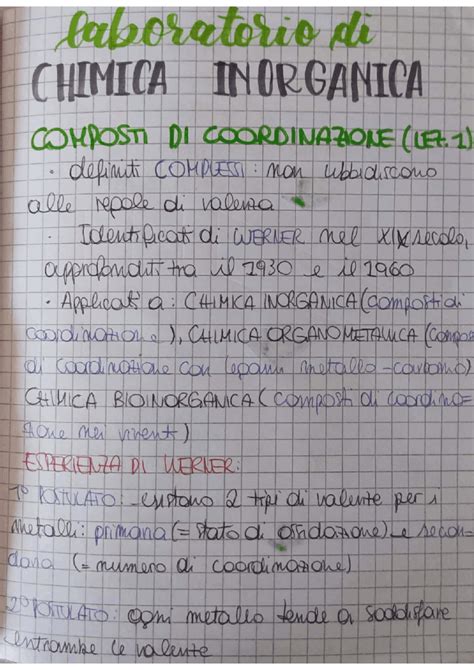 laboratorio di
CHIMICA INORGANICA
COMPOSTI DI COORDINAZIONE (LEZ. 1)
· definiti COMPLESSI: non ubbidiscono
alle regole di valenza
· Identificati di WERNER nel XIX secolo,
approfonditi tra il 1930 e il 1960
· Applicati a: CHIMICA INORGANICA (composti di
coordinazione), CHIMICA ORGANOMETALLICA (compos
di coordinazione con legami metallo-carbonio)
CHIMICA BIOINORGANICA (composti di coordina=
zione nei viventi)
ESPERIENZA DI WERNER:
1° POSTULATO: esistono 2 tipi di valente per i
metalli: primaria (= stato di ossidazione) e secon-
daria (= numero di coordinazione)
2° POSTULATO: ogni metallo tende a soddisfare
entrambe le valente